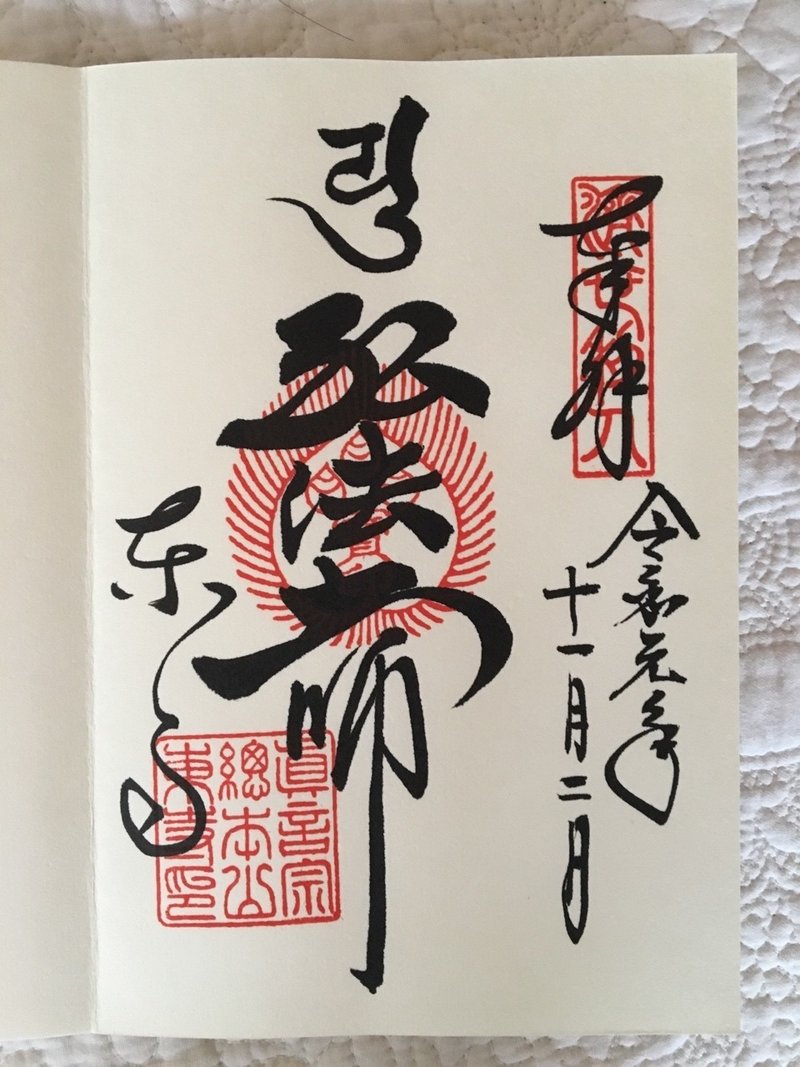 奉拝
令和元年
十一月二日
弘法大師
東寺
眞言宗
總本山
東寺印